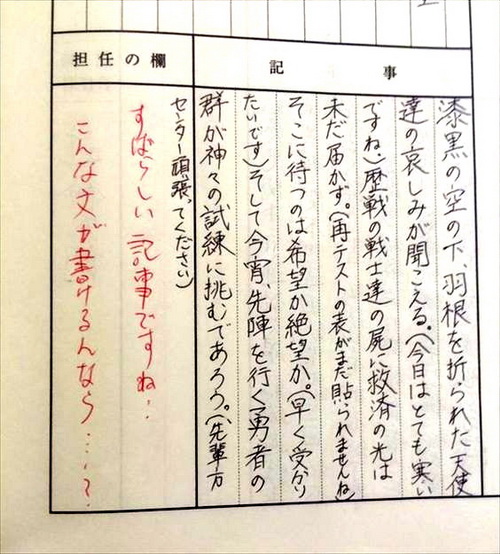 記事
漆黒の空の下、羽根を折られた天使
達の哀しみが聞こえる。(今日はとても寒い
ですね)歴戦の戦士達の屍に救済の光は
未だ届かず。(再テストの表がまだ貼られませんね)
そこに待つのは希望か絶望か。(早く受かり
たいです)そして今宵、先陣を行く勇者の
群が神々の試練に挑むであろう。(先輩方
センター頑張ってください)
担任の欄
すばらしい記事ですね‥
こんな文が書けるんなら‥‥?